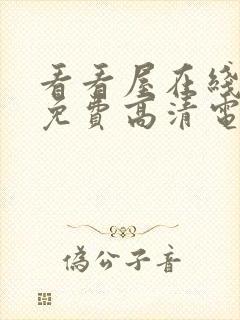 看看屋在线
免費高清電
偽公子音